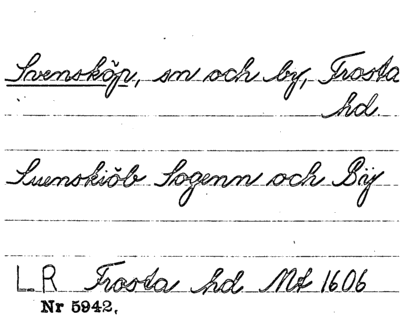 Svensköp, sn och by, Frosta
hd
Suenskiöb Sogenn och Bÿ
LR Frosta hd Mt 1606
Nr 5942.